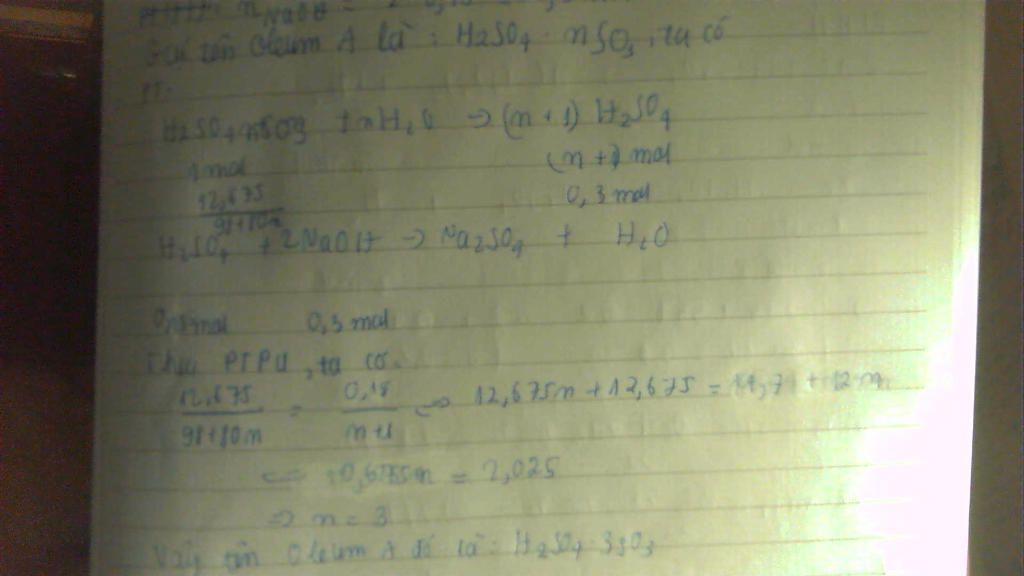 n NaOH =
tên Oleum A là : H2SO4 . nSO3, ta có
PT:
H2SO4.nSO3 + nH2O → (n + 1) H2SO4
1 mol (n + 1) mol
12,675 / 98+80n 0,3 mol
H2SO4 + 2NaOH → Na2SO4 + H2O
0,3 mol
PTPU, ta có.
12,675 / 98+80n = 0,15 / n+1 ⇔ 12,675n + 12,675 = 14,7 + 12n
⇔ = 2,025
⇒ n = 3
Vậy tên Oleum A đó là : H2SO4.3SO3